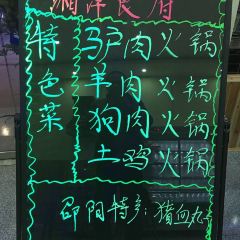 特色菜
驴肉火锅
羊肉火锅
狗肉火锅
土鸡火锅
邵阳特产:猪血丸